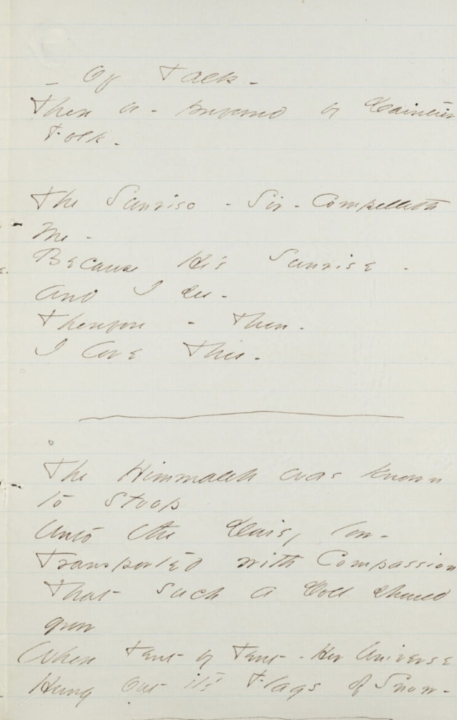 - Of Talk -
There be - preferred by Daintier
Folk -
The Sunrise - Sir - Compelleth
Me -
Because He's Sunrise -
And I see -
Therefore - Then -
I love Thee -
The Himmaleh was known
to stoop
Unto the Daisy low -
Transported with Compassion
That such a Doll should
grow
Where Tent by Tent - Her Universe
Hung out it's Flags of Snow -